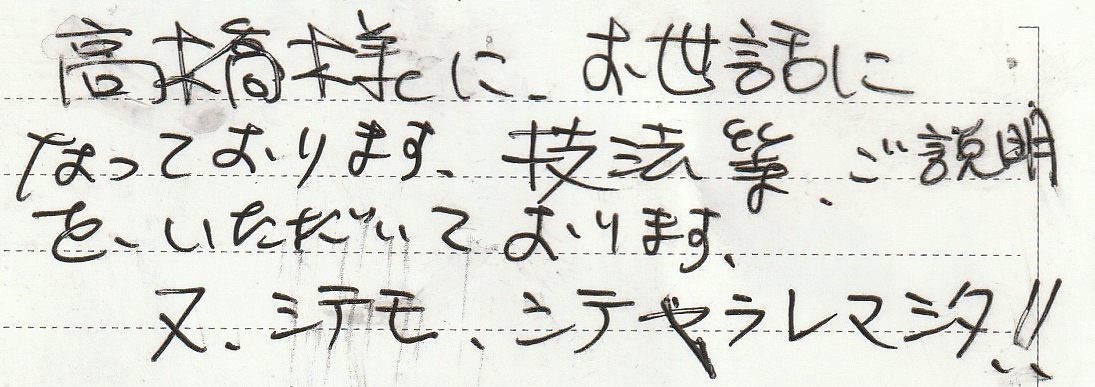 高橋様に、お世話に
なっております、技法等、ご説明
を、いただいております、
又、シテモ、シテヤラレマシタ!!